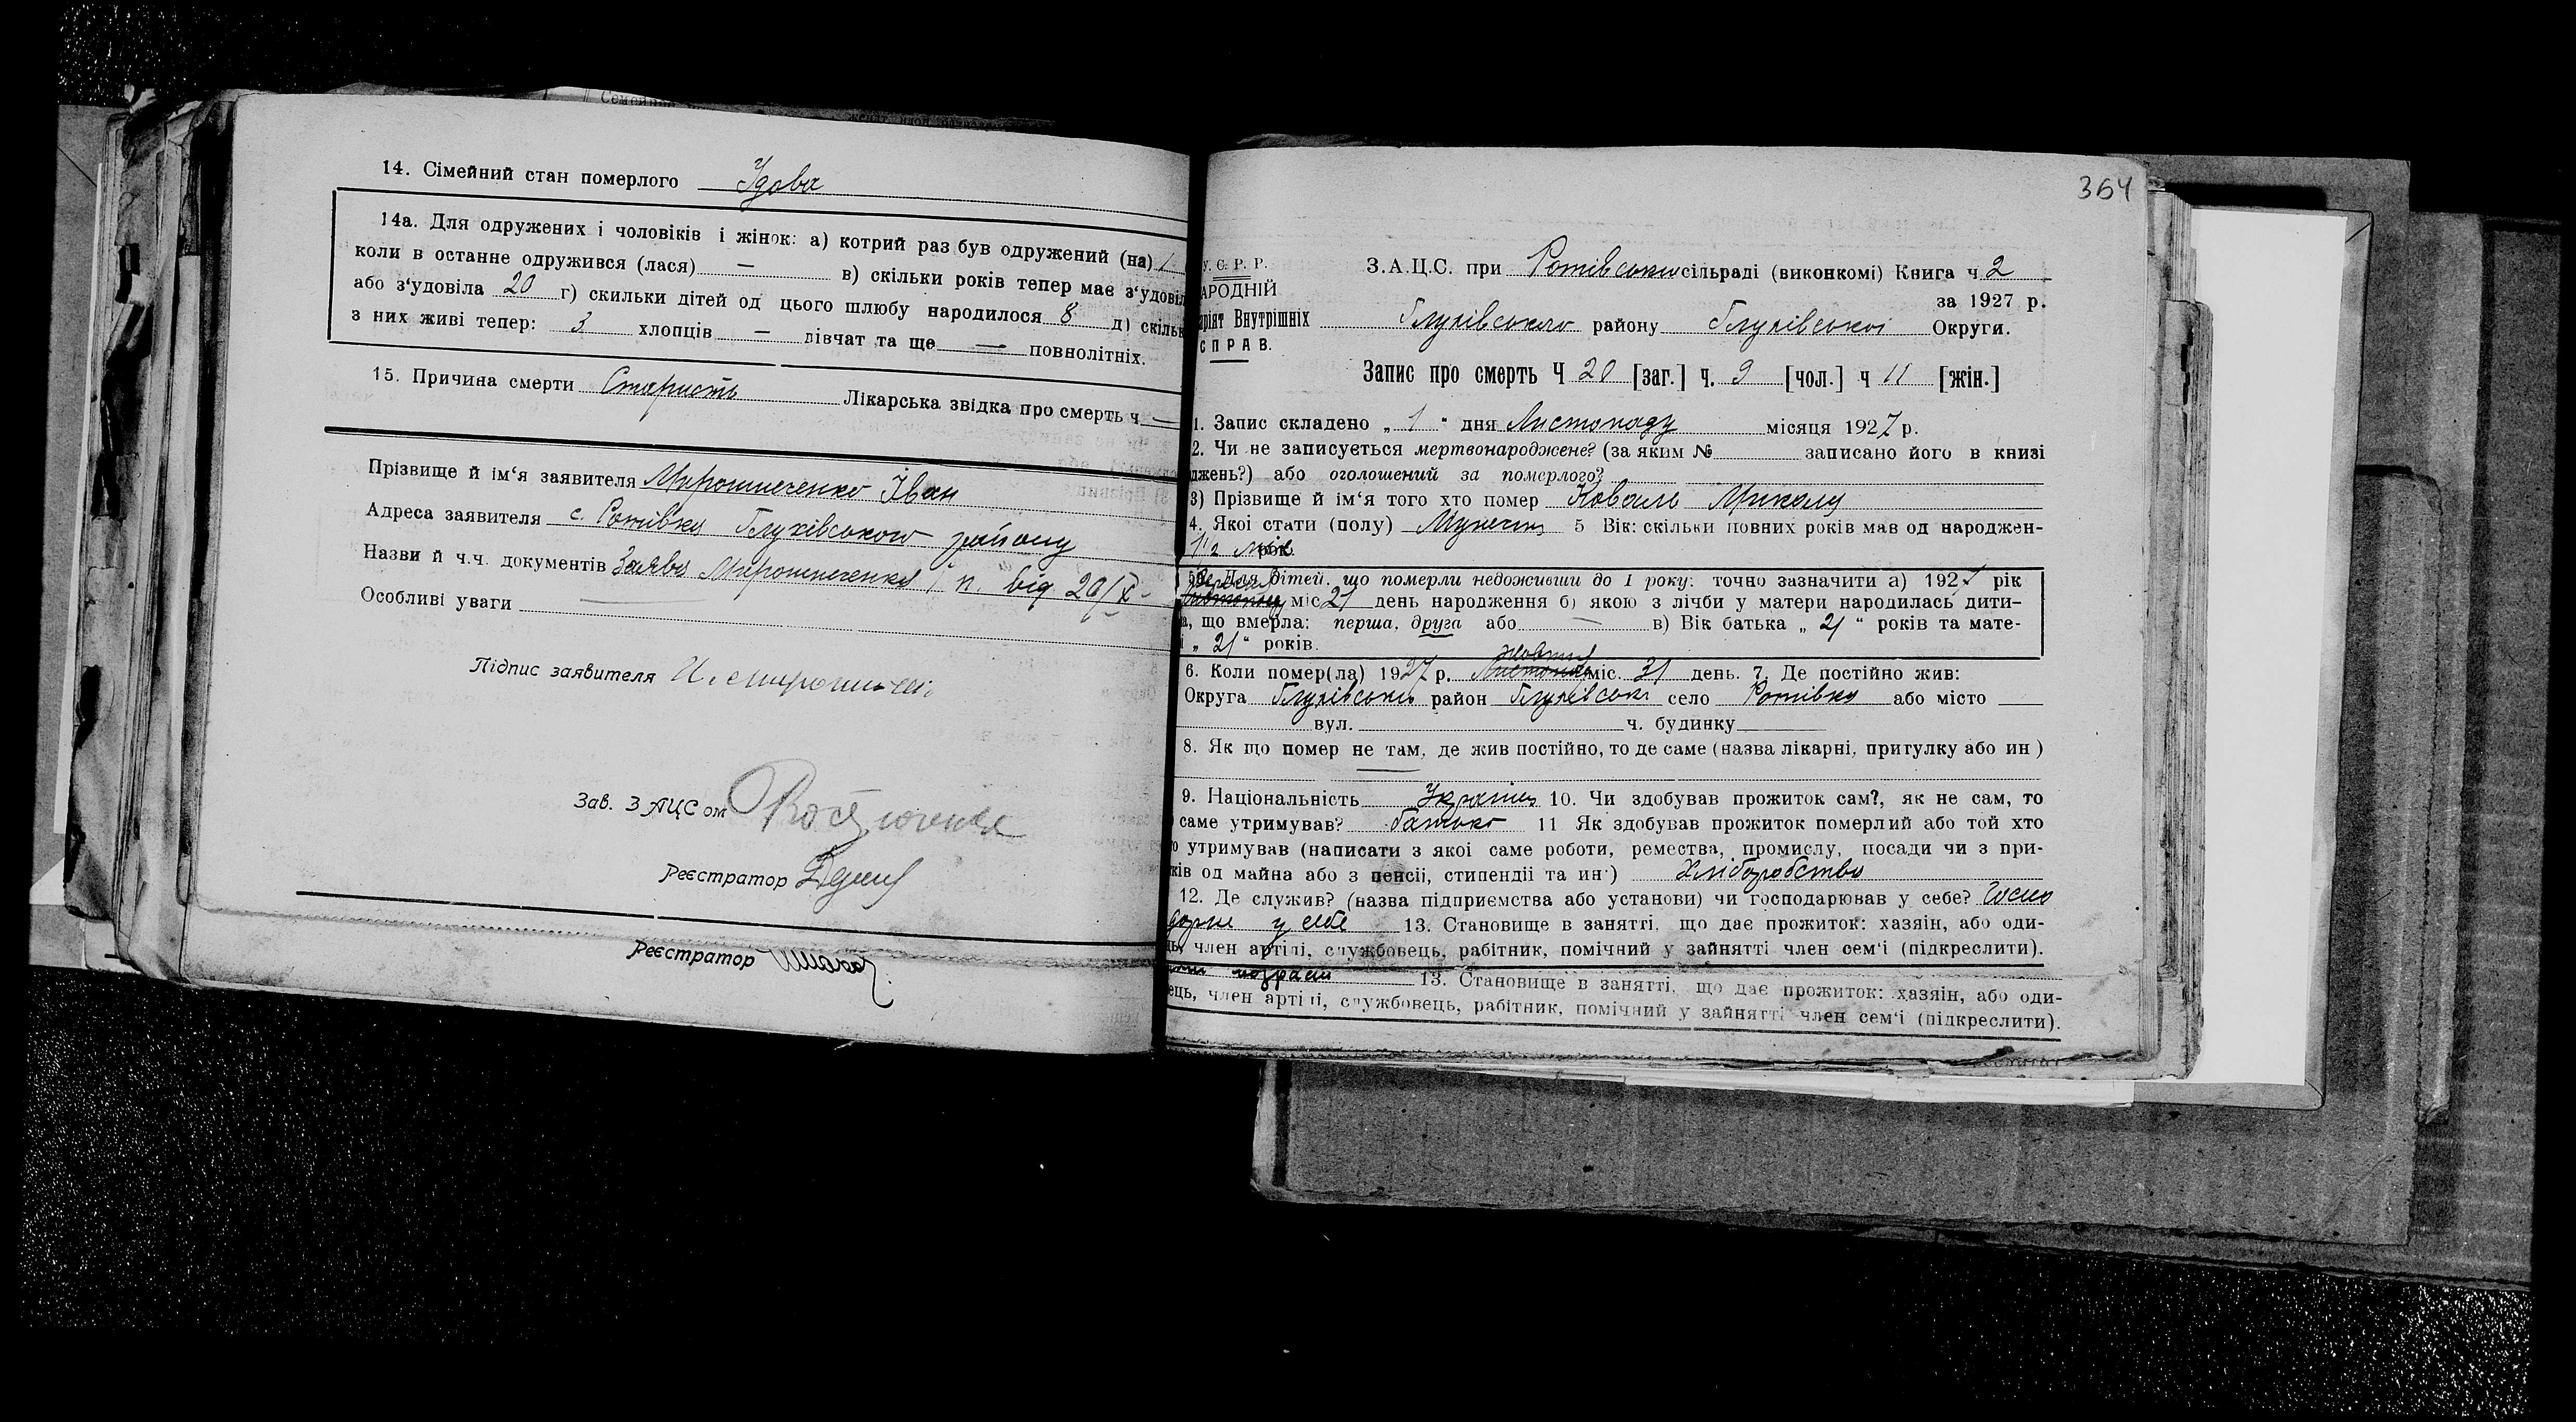 14. Сімейний стан померлого Удова
14а. Для одружених і чоловіків і жінок: а) котрий раз був одружений (на) 1
коли в останне одружився (лася) — в) скільки років тепер має з'удовіл
або з'удовіла 20 г) скильки дітей од цього шлюбу народилося 8 д) скільк
з них живі тепер: 3 хлопців — дівчат та ще — повнолітніх.
15. Причина смерти Старість Лікарська звідка про смерть ч. —
Прізвище й ім'я заявителя Мирошниченко Іван
Адреса заявителя с. Ротівка Глухівського району
Назви й ч.ч. документів Заява Мирошниченка І п. від 20/X-
Особливі уваги
Підпис заявителя И. Мирошниче
Зав. ЗАЦСом
Реєстратор
Реєстратор
364
У.С.Р.Р.
АРОДНІЙ
аріят Внутрішніх
СПРАВ.
З.А.Ц.С. при Ротівській сільраді (виконкомі) Книга ч. 2
за 1927 р.
Глухівського району Глухівської Округи.
Запис про смерть Ч 20 [заг.] ч. 9 [чол.] ч 11 [жін.]
1. Запис складено „ 1 " дня Листопаду місяця 1927 р.
2. Чи не записується мертвонароджене? (за яким № записано його в книзі
джень?) або оголошений за померлого?
3) Прізвище й ім'я того хто помер Коваль Микола
4. Якоі стати (полу) 5 Вік: скільки повних років мав од народжен-
1 1/2 міс рок
5а. Для дітей, що померли недоживши до 1 року: точно зазначити а) 1927 рік
міс 21 день народження б) якою з лічби у матери народилась дити-
а, що вмерла: перша, друга або — в) Вік батька „ 21 " років та мате-
і „ 21 " років.
Жовтня
6. Коли помер(ла) 1927 р. міс. 31 день. 7. Де постійно жив:
Округа Глухівська район Глухівськ село Ротівка або місто
вул. ч. будинку
8. Як що помер не там, де жив постійно, то де саме (назва лікарні, притулку або ин )
9. Національність 10. Чи здобував прожиток сам?, як не сам, то
саме утримував? батько 11 Як здобував прожиток померлий або той хто
о утримував (написати з якоі саме роботи, ремества, промислу, посади чи з при-
ків од майна або з пенсіі, стипендіі та ин·) Хліборобство
12. Де служив? (назва підприємства або установи) чи господарював у себе? Госпо
дарив у себе 13. Становище в занятті, що дає прожиток: хазяін, або оди-
ць, член артілі, службовець, рабітник, помічний у зайнятті член сем'і (підкреслити).
13. Становище в занятті, що дає прожиток: хазяін, або оди-
ець, член артілі, службовець, рабітник, помічний у зайнятті член сем'і (підкреслити).